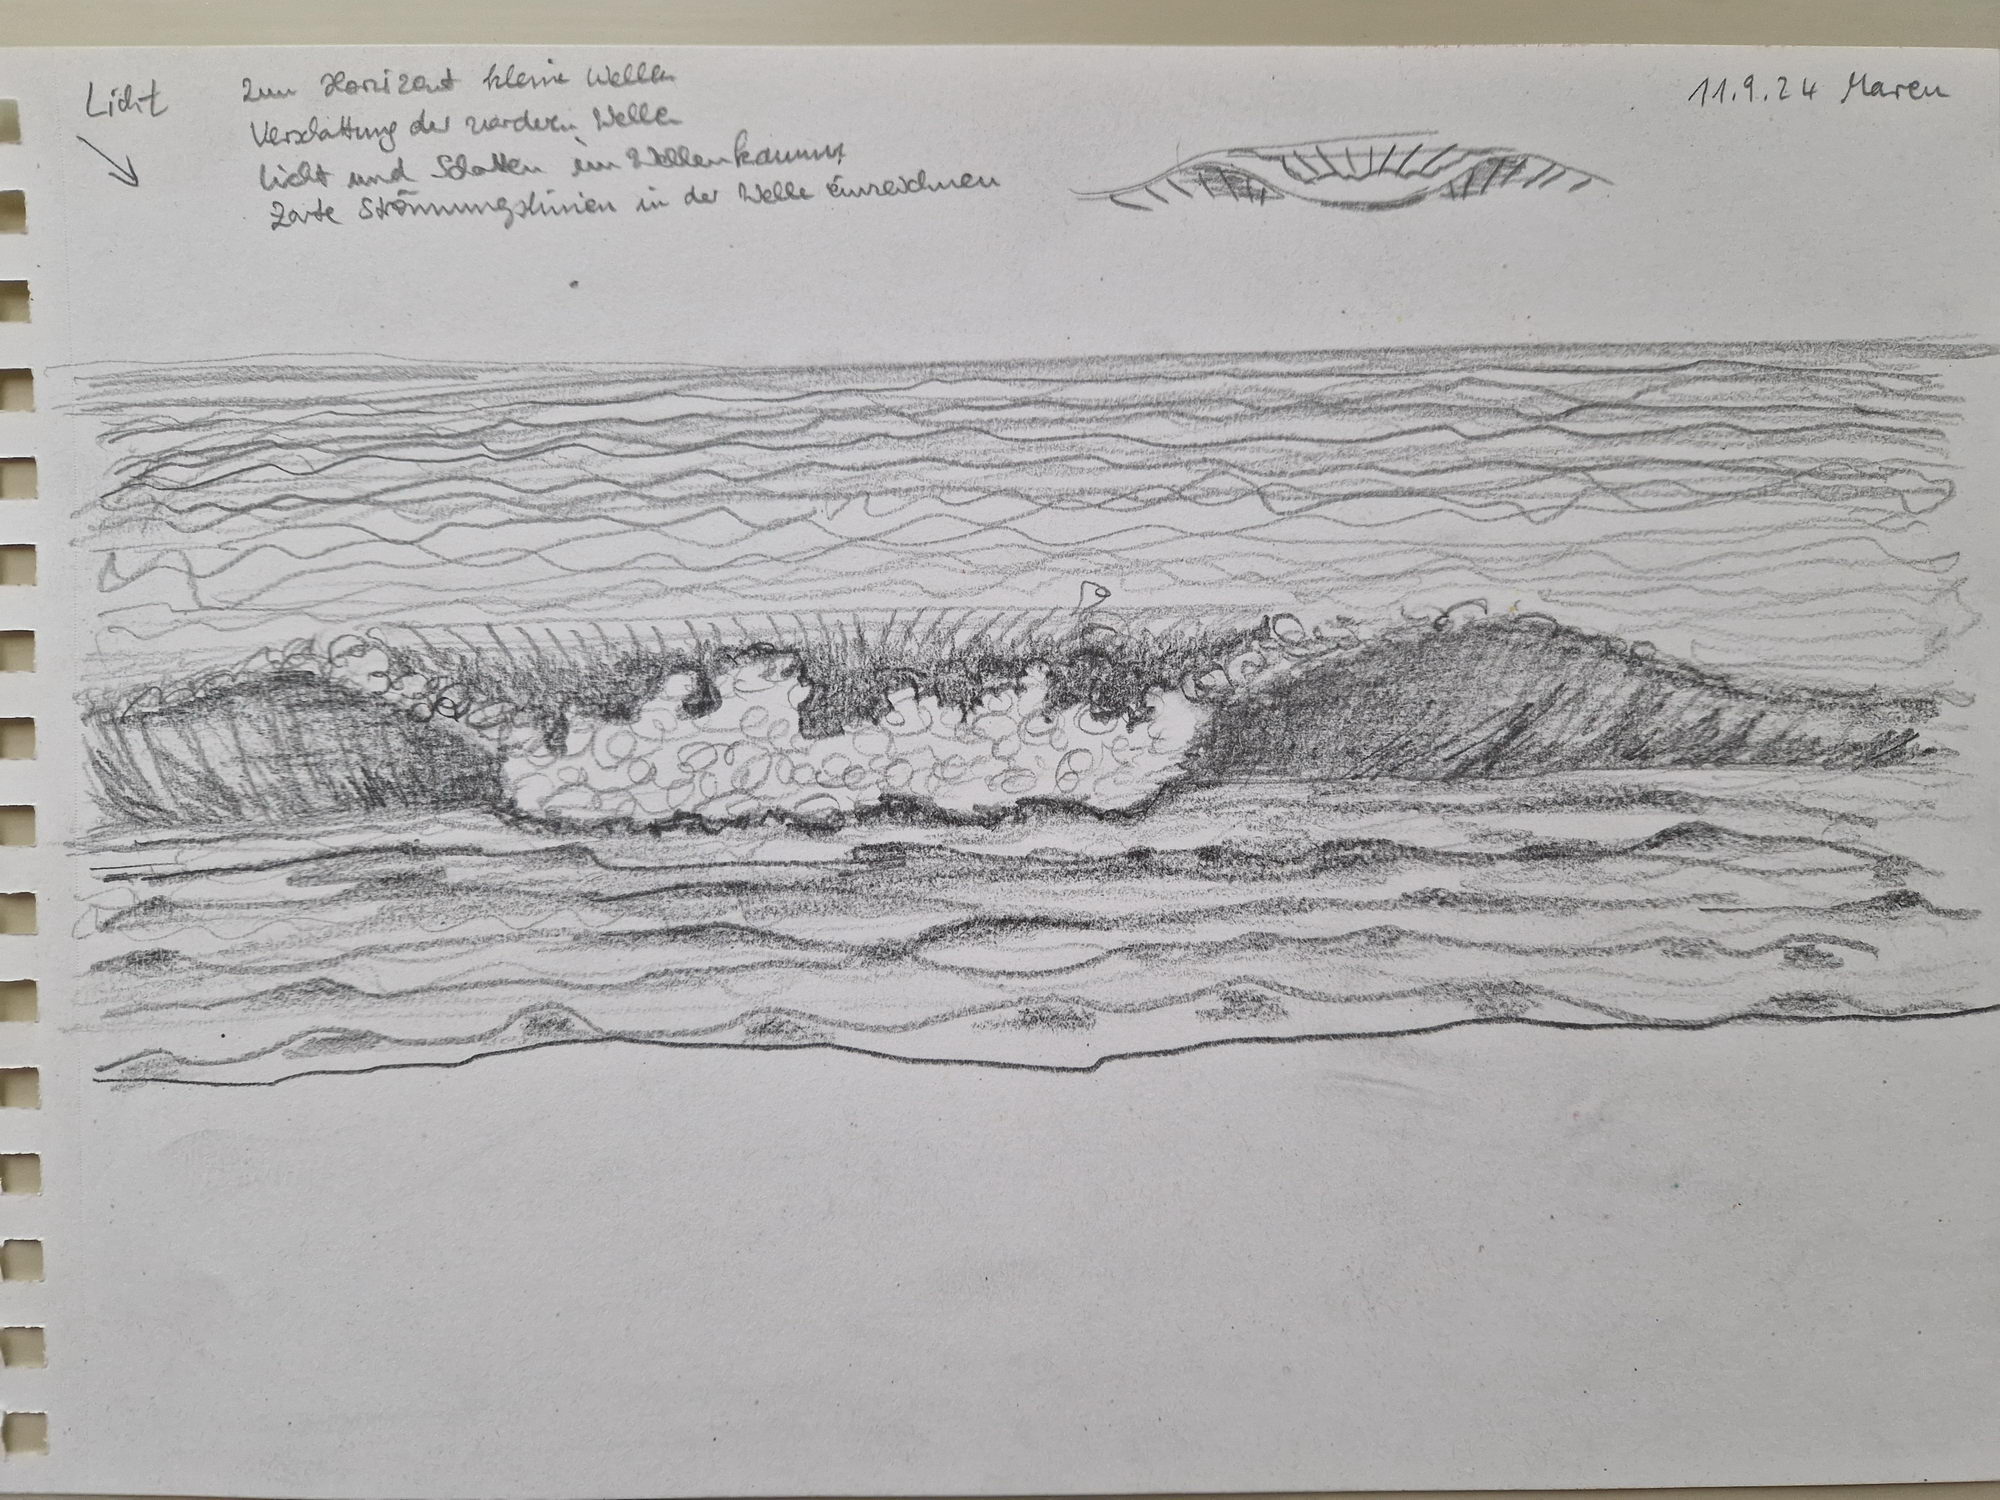 Licht
zum Horizont kleine Wellen
Verschattung der vorderen Welle
Licht und Schatten im Wellenkamm
Zarte Strömungslinien in der Welle einzeichnen
11.9.24 Maren